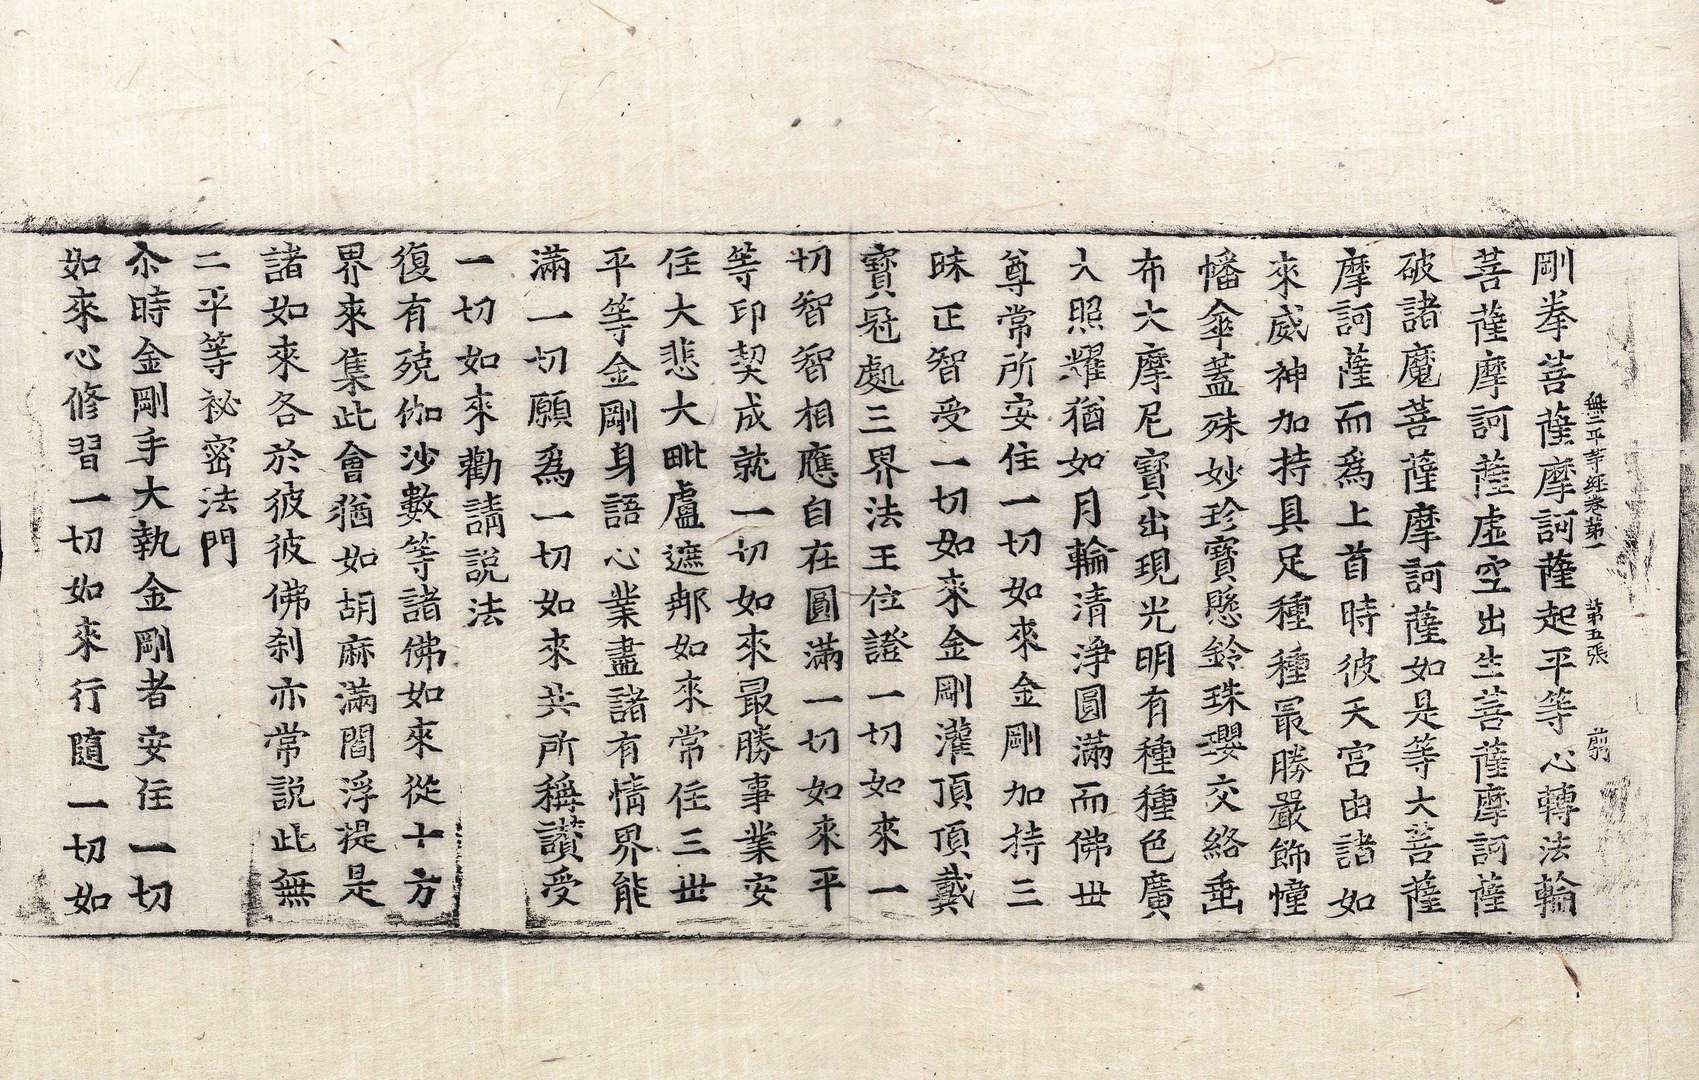 無二平等經卷第一　第五張　翦
剛拳菩薩摩訶薩起平等心轉法輪
菩薩摩訶薩虛空出生菩薩摩訶薩
破諸魔菩薩摩訶薩如是等大菩薩
摩訶薩而爲上首時彼天宮由諸如
來威神加持具足種種最勝嚴飾幢
幡傘蓋殊妙珍寶懸鈴珠瓔交絡垂
布大摩尼寶出現光明有種種色廣
大照耀猶如月輪清淨圓滿而佛世
尊常所安住一切如來金剛加持三
昧正智受一切如來金剛灌頂頂戴
寶冠處三界法王位證一切如來一
切智智相應自在圓滿一切如來平
等印契成就一切如來最勝事業安
住大悲大毗盧遮那如來常住三世
平等金剛身語心業盡諸有情界能
滿一切願爲一切如來共所稱讚受
一切如來勸請說法
復有殑伽沙數等諸佛如來從十方
界來集此會猶如胡麻滿閻浮提是
諸如來各於彼彼佛刹亦常說此無
二平等祕密法門
尒時金剛手大執金剛者安住一切
如來心修習一切如來行隨一切如